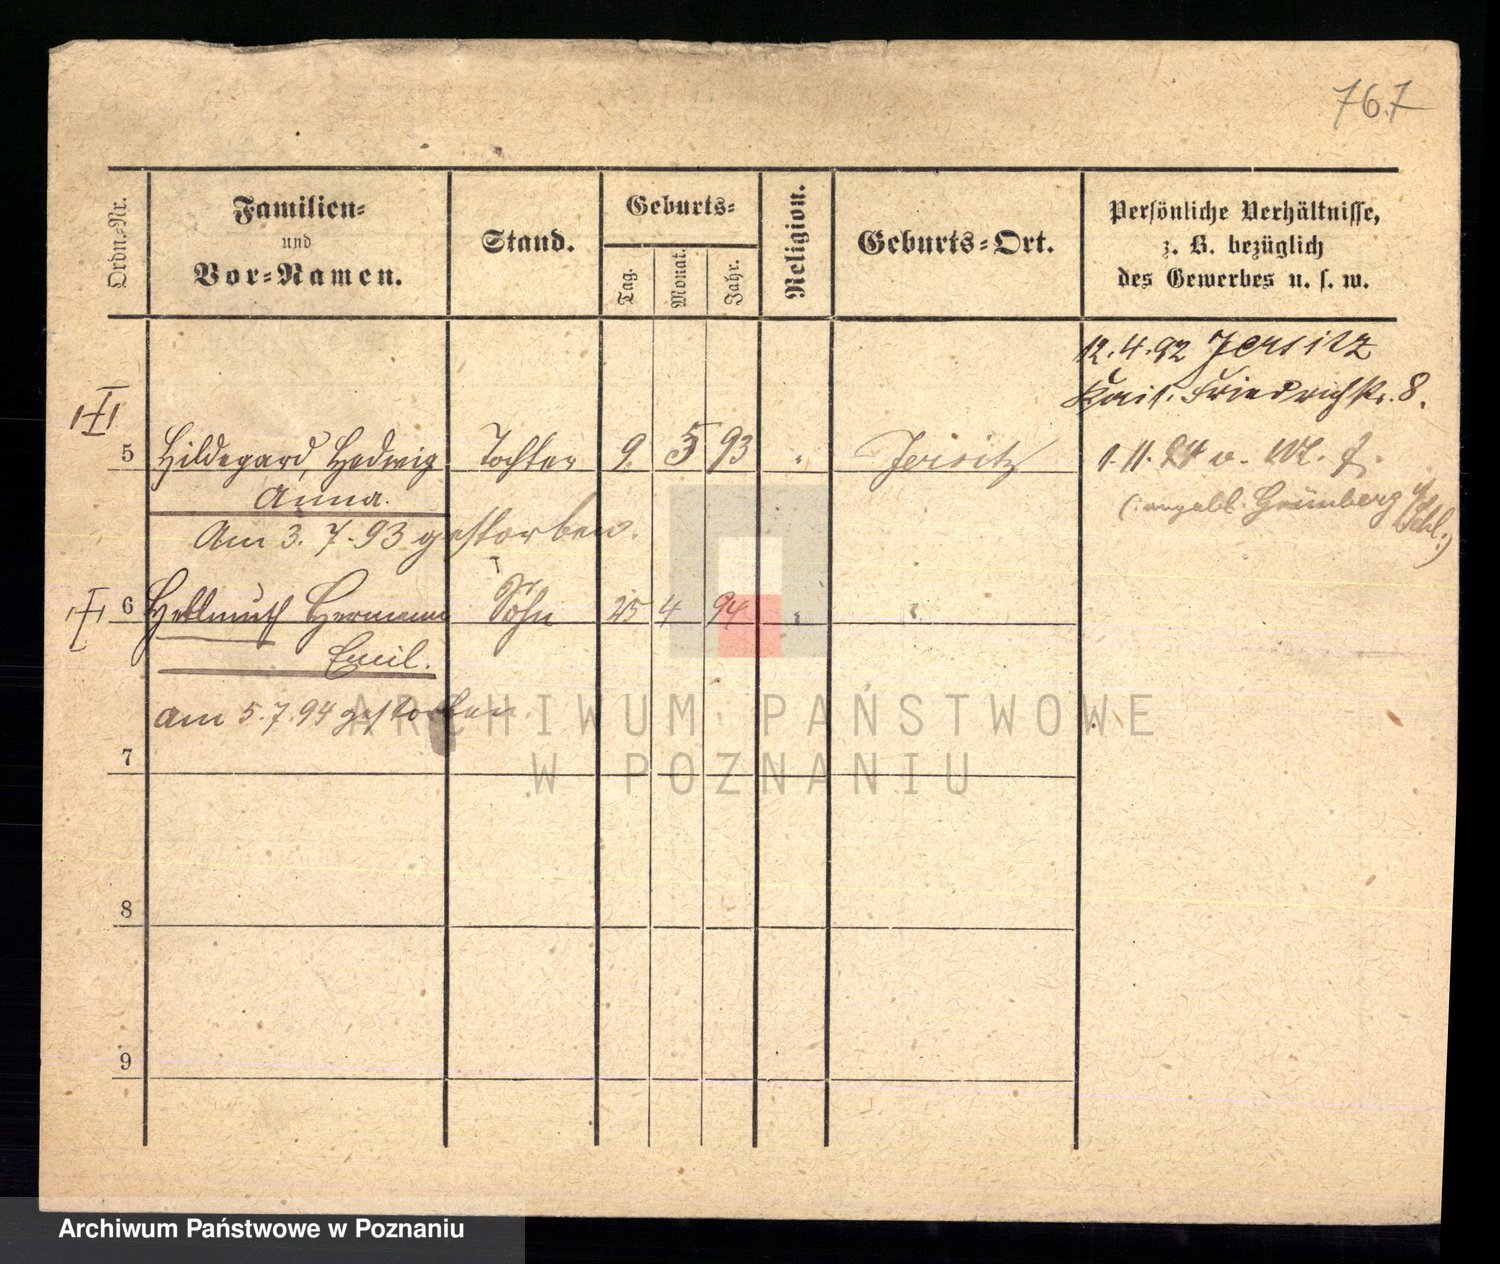 767
Ordn.-Nr.
Familien-
und
Vor-Namen.
Stand.
Geburts-
Tag.
Monat.
Jahr.
Religion.
Geburts-Ort.
Persönliche Verhältnisse,
z. B. bezüglich
des Gewerbes u. s. w.
12.4.92 Jersitz
Kais. Friedrichstr. 8.
5 Hildegard, Hedwig Tochter 9. 5 93 " Jersitz
Anna.
Am 3.7.93 gestorben.
1.11.
(: angebl. Grünberg i/
Schl. :)
6 Hellmuth Hermann Sohn 25 4 94 " "
Emil.
am 5.7.94 gestorben
7
8
9
ARCHIWUM PAŃSTWOWE
W POZNANIU
Archiwum Państwowe w Poznaniu